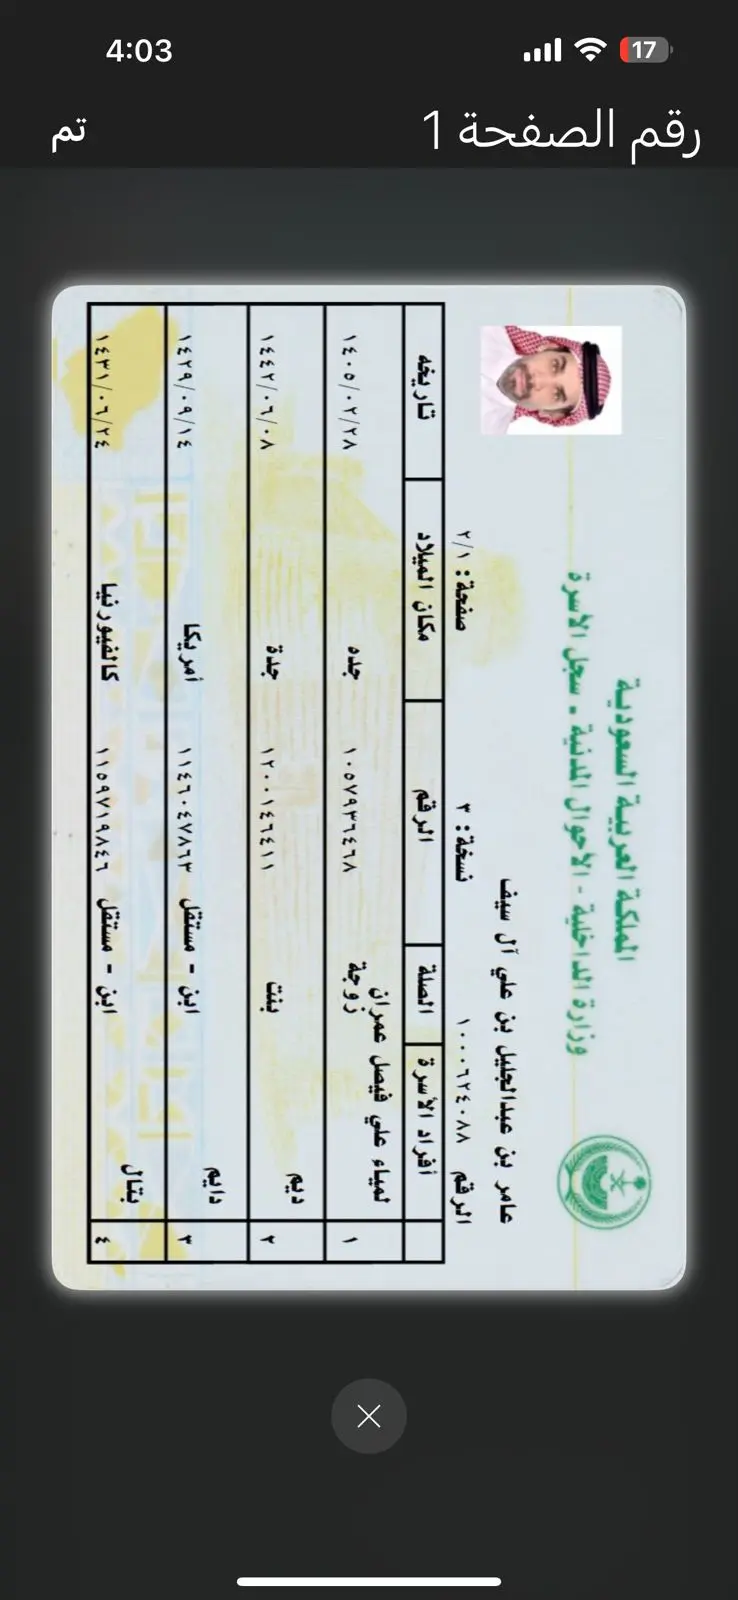 4:03
17
رقم الصفحة 1
تم
المملكة العربية السعودية
وزارة الداخلية - الأحوال المدنية - سجل الأسرة
عامر بن عبدالجليل بن علي آل سيف
الرقم ١٠٠٠٦٢٤٠٨٨ نسخة: ٣ صفحة: ٢/١
أفراد الأسرة الصلة الرقم مكان الميلاد تاريخه
١ لمياء علي فيصل عمران زوجة ١٠٥٧٩٣٦٤٦٨ جده ١٤٠٥/٠٢/٢٨
٢ ديم بنت ١٢٠٠١٤٦٤١١ جدة ١٤٤٢/٠٦/٠٨
٣ دايم ابن - مستقل ١١٤٦٠٤٧٨٦٣ أمريكا ١٤٢٩/٠٩/١٤
٤ بتال ابن - مستقل ١١٥٩٧١٩٨٤٦ كالفيورنيا ١٤٣١/٠٦/٢٤